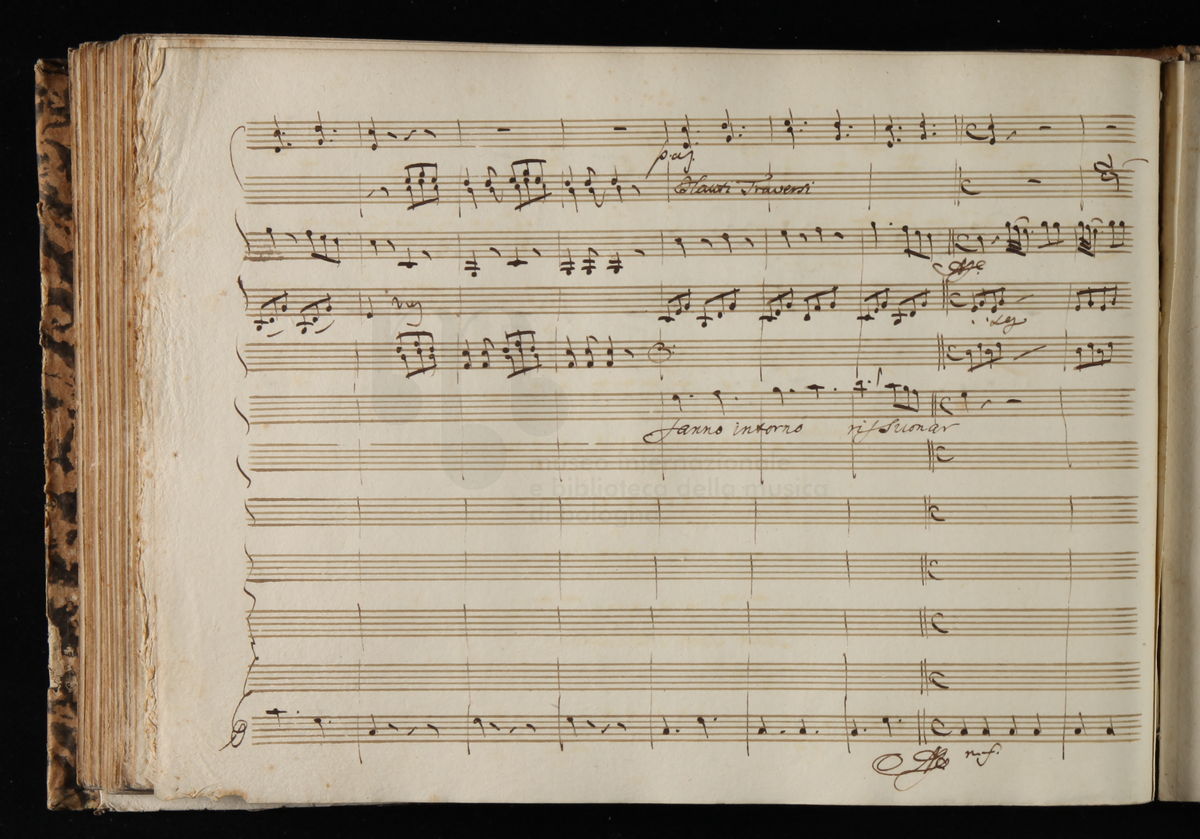 Flauti Traversi
fanno intorno rissuonar
museo internazionale
e biblioteca della musica
di bologna
Allo
mf.